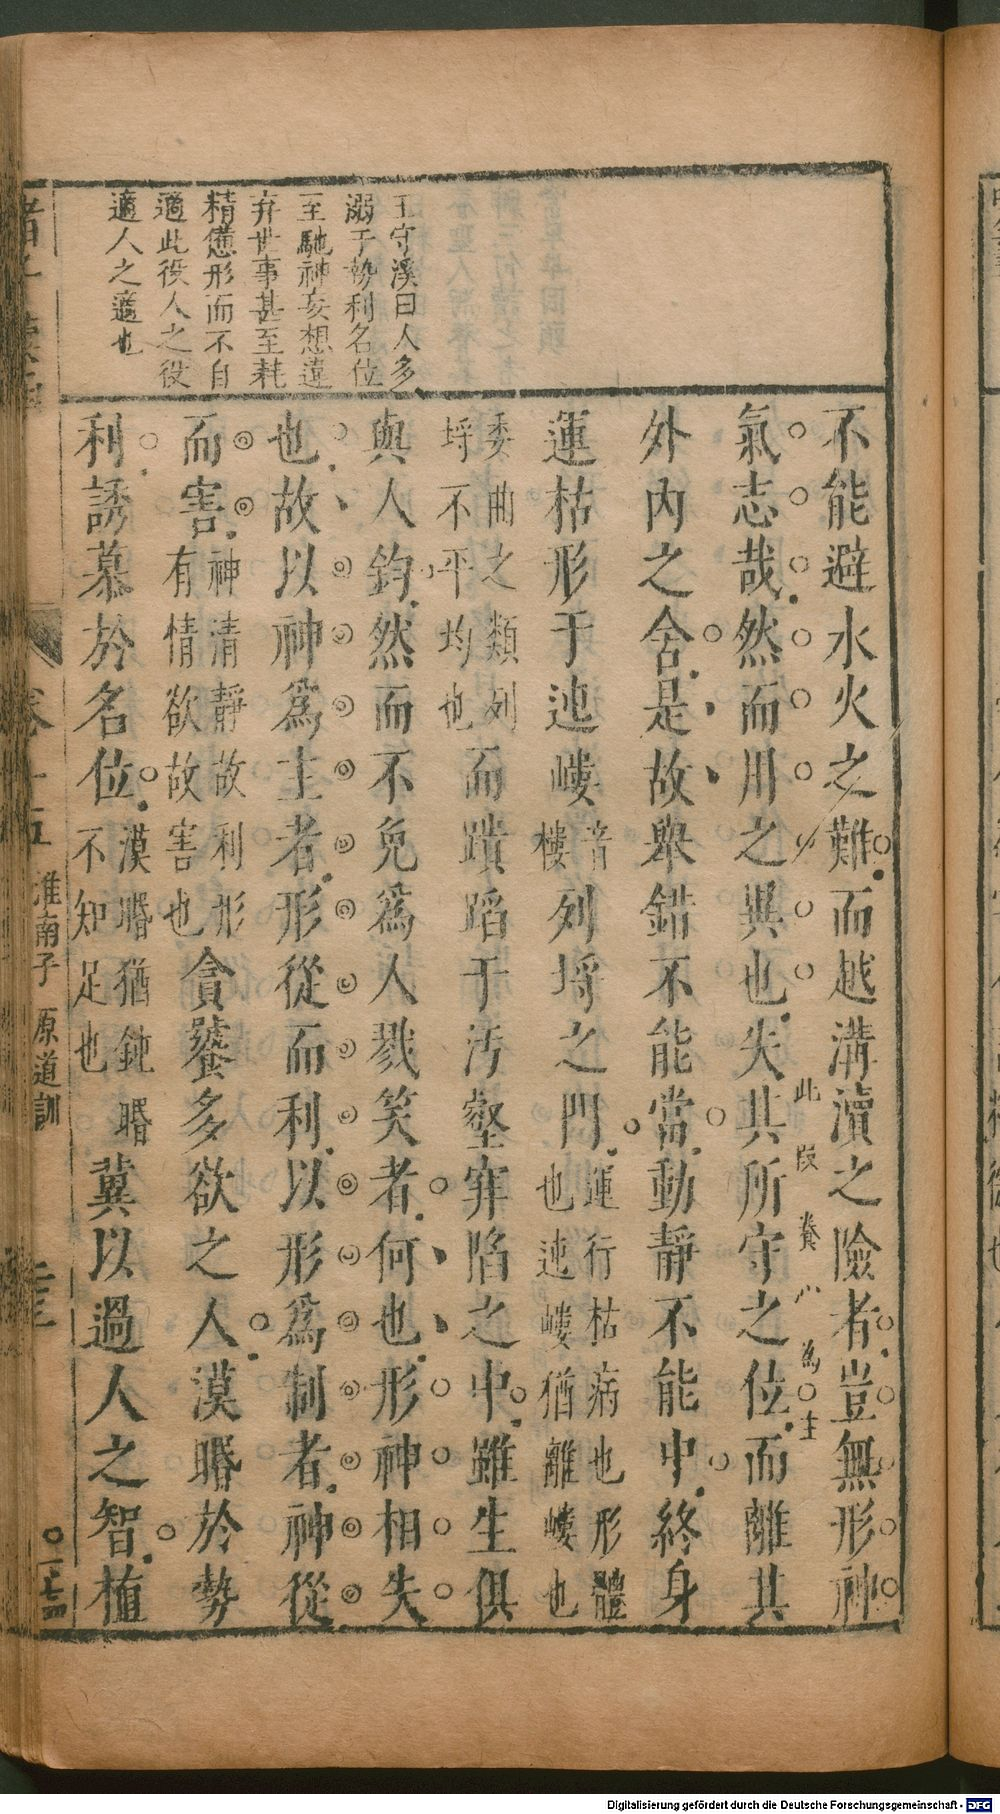 王守溪曰人多
溺于勢利名位
至馳神妄想違
弃世事甚至耗
精憊形而不自
適此役人之役
適人之適也
不能避水火之難而越溝瀆之險者豈無形神
氣志哉然而用之異也失其所守之位而離其
此段養心為主
外內之舍是故舉錯不能當動靜不能中終身
運枯形于連嶁音樓列埒之門運行枯病也形體也連嶁猶離嶁也
委曲之類列埒不平均也而蹪蹈于汚壑穽陷之中雖生俱
與人鈞然而不免爲人戮笑者何也形神相失
也故以神爲主者形從而利以形爲制者神從
而害神清靜故利形有情欲故害也貪饕多欲之人漠睧於勢
利誘慕於名位漠睧猶鈍睧不知足也冀以過人之智植
淮南子 原道訓
Digitalisierung gefördert durch die Deutsche Forschungsgemeinschaft - DFG